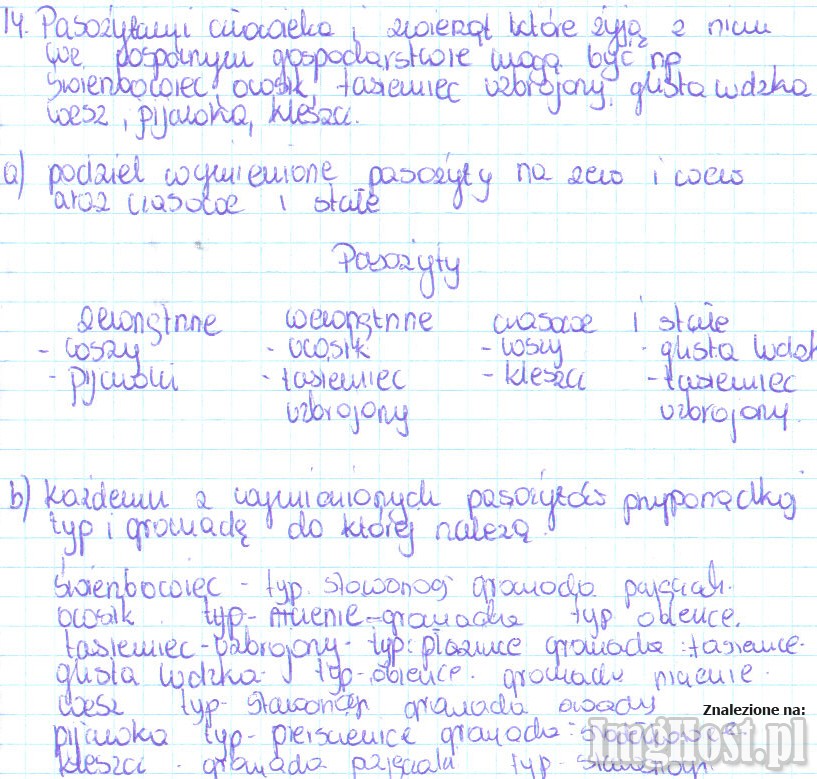 14. Pasożytami człowieka i zwierząt które żyją z nim
we wspólnym gospodarstwie mogą być np
świerzbowiec, owsik, tasiemiec uzbrojony, glista ludzka
wesz, pijawka, kleszcz.
a) podziel wymienione pasożyty na zew i wew
oraz czasowe i stałe
Pasożyty
zewnętrzne wewnętrzne czasowe i stałe
- wszy - owsik - wszy - glista ludzk
- pijawki - tasiemiec - kleszcz - tasiemiec
uzbrojony uzbrojony
b) Każdemu z wymienionych pasożytów przyporządkuj
typ i gromadę do której należą.
świerzbowiec - typ. stawonogi gromada pajęczaki.
owsik typ - nicienie - gromada typ obleńce.
tasiemiec - uzbrojony - typ: płazińce gromada: tasiemce.
glista ludzka - typ - obleńce. gromada nicienie.
wesz typ - stawonogi gromada owady
Znalezione na:
pijawka typ - pierścienice gromada:
ImgHost.pl
kleszcz - gromada pajęczaki typ - stawonogi